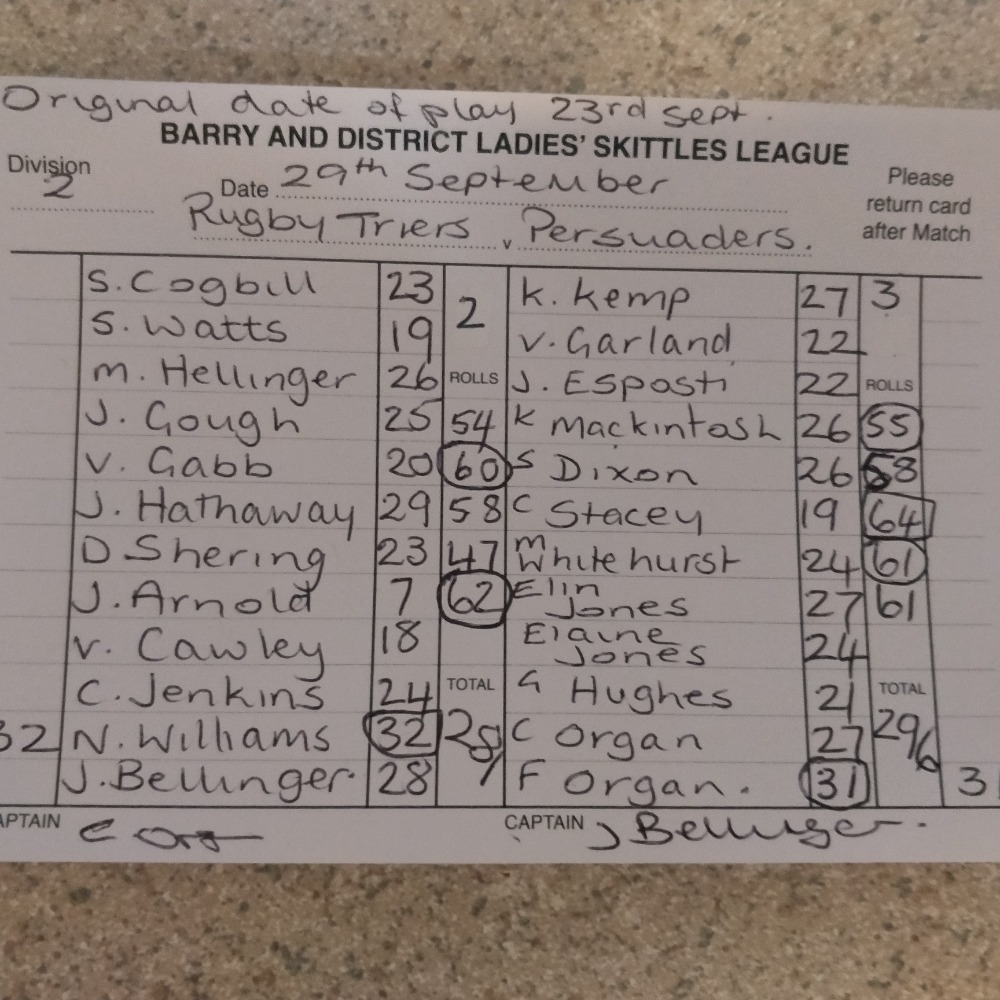 Original date of play 23rd sept.
BARRY AND DISTRICT LADIES' SKITTLES LEAGUE
Division 2
Date 29th September
Please return card after Match
Rugby Triers v Persuaders.
S. Cogbill 23 2 K. Kemp 27 3
S. Watts 19 V. Garland 22
M. Hellinger 26 ROLLS J. Esposti 22 ROLLS
J. Gough 25 54 K Mackintosh 26 55
V. Gabb 20 60 S Dixon 26 58
J. Hathaway 29 58 C Stacey 19 64
D Shering 23 47 M Whitehurst 24 61
J. Arnold 7 62 Elin Jones 27 61
V. Cawley 18 Elaine Jones 24
C. Jenkins 24 TOTAL G Hughes 21 TOTAL
32 N. Williams 32 281 C Organ 27 296
J. Bellinger. 28 F Organ. 31 3
APTAIN CAPTAIN J Bellinger.